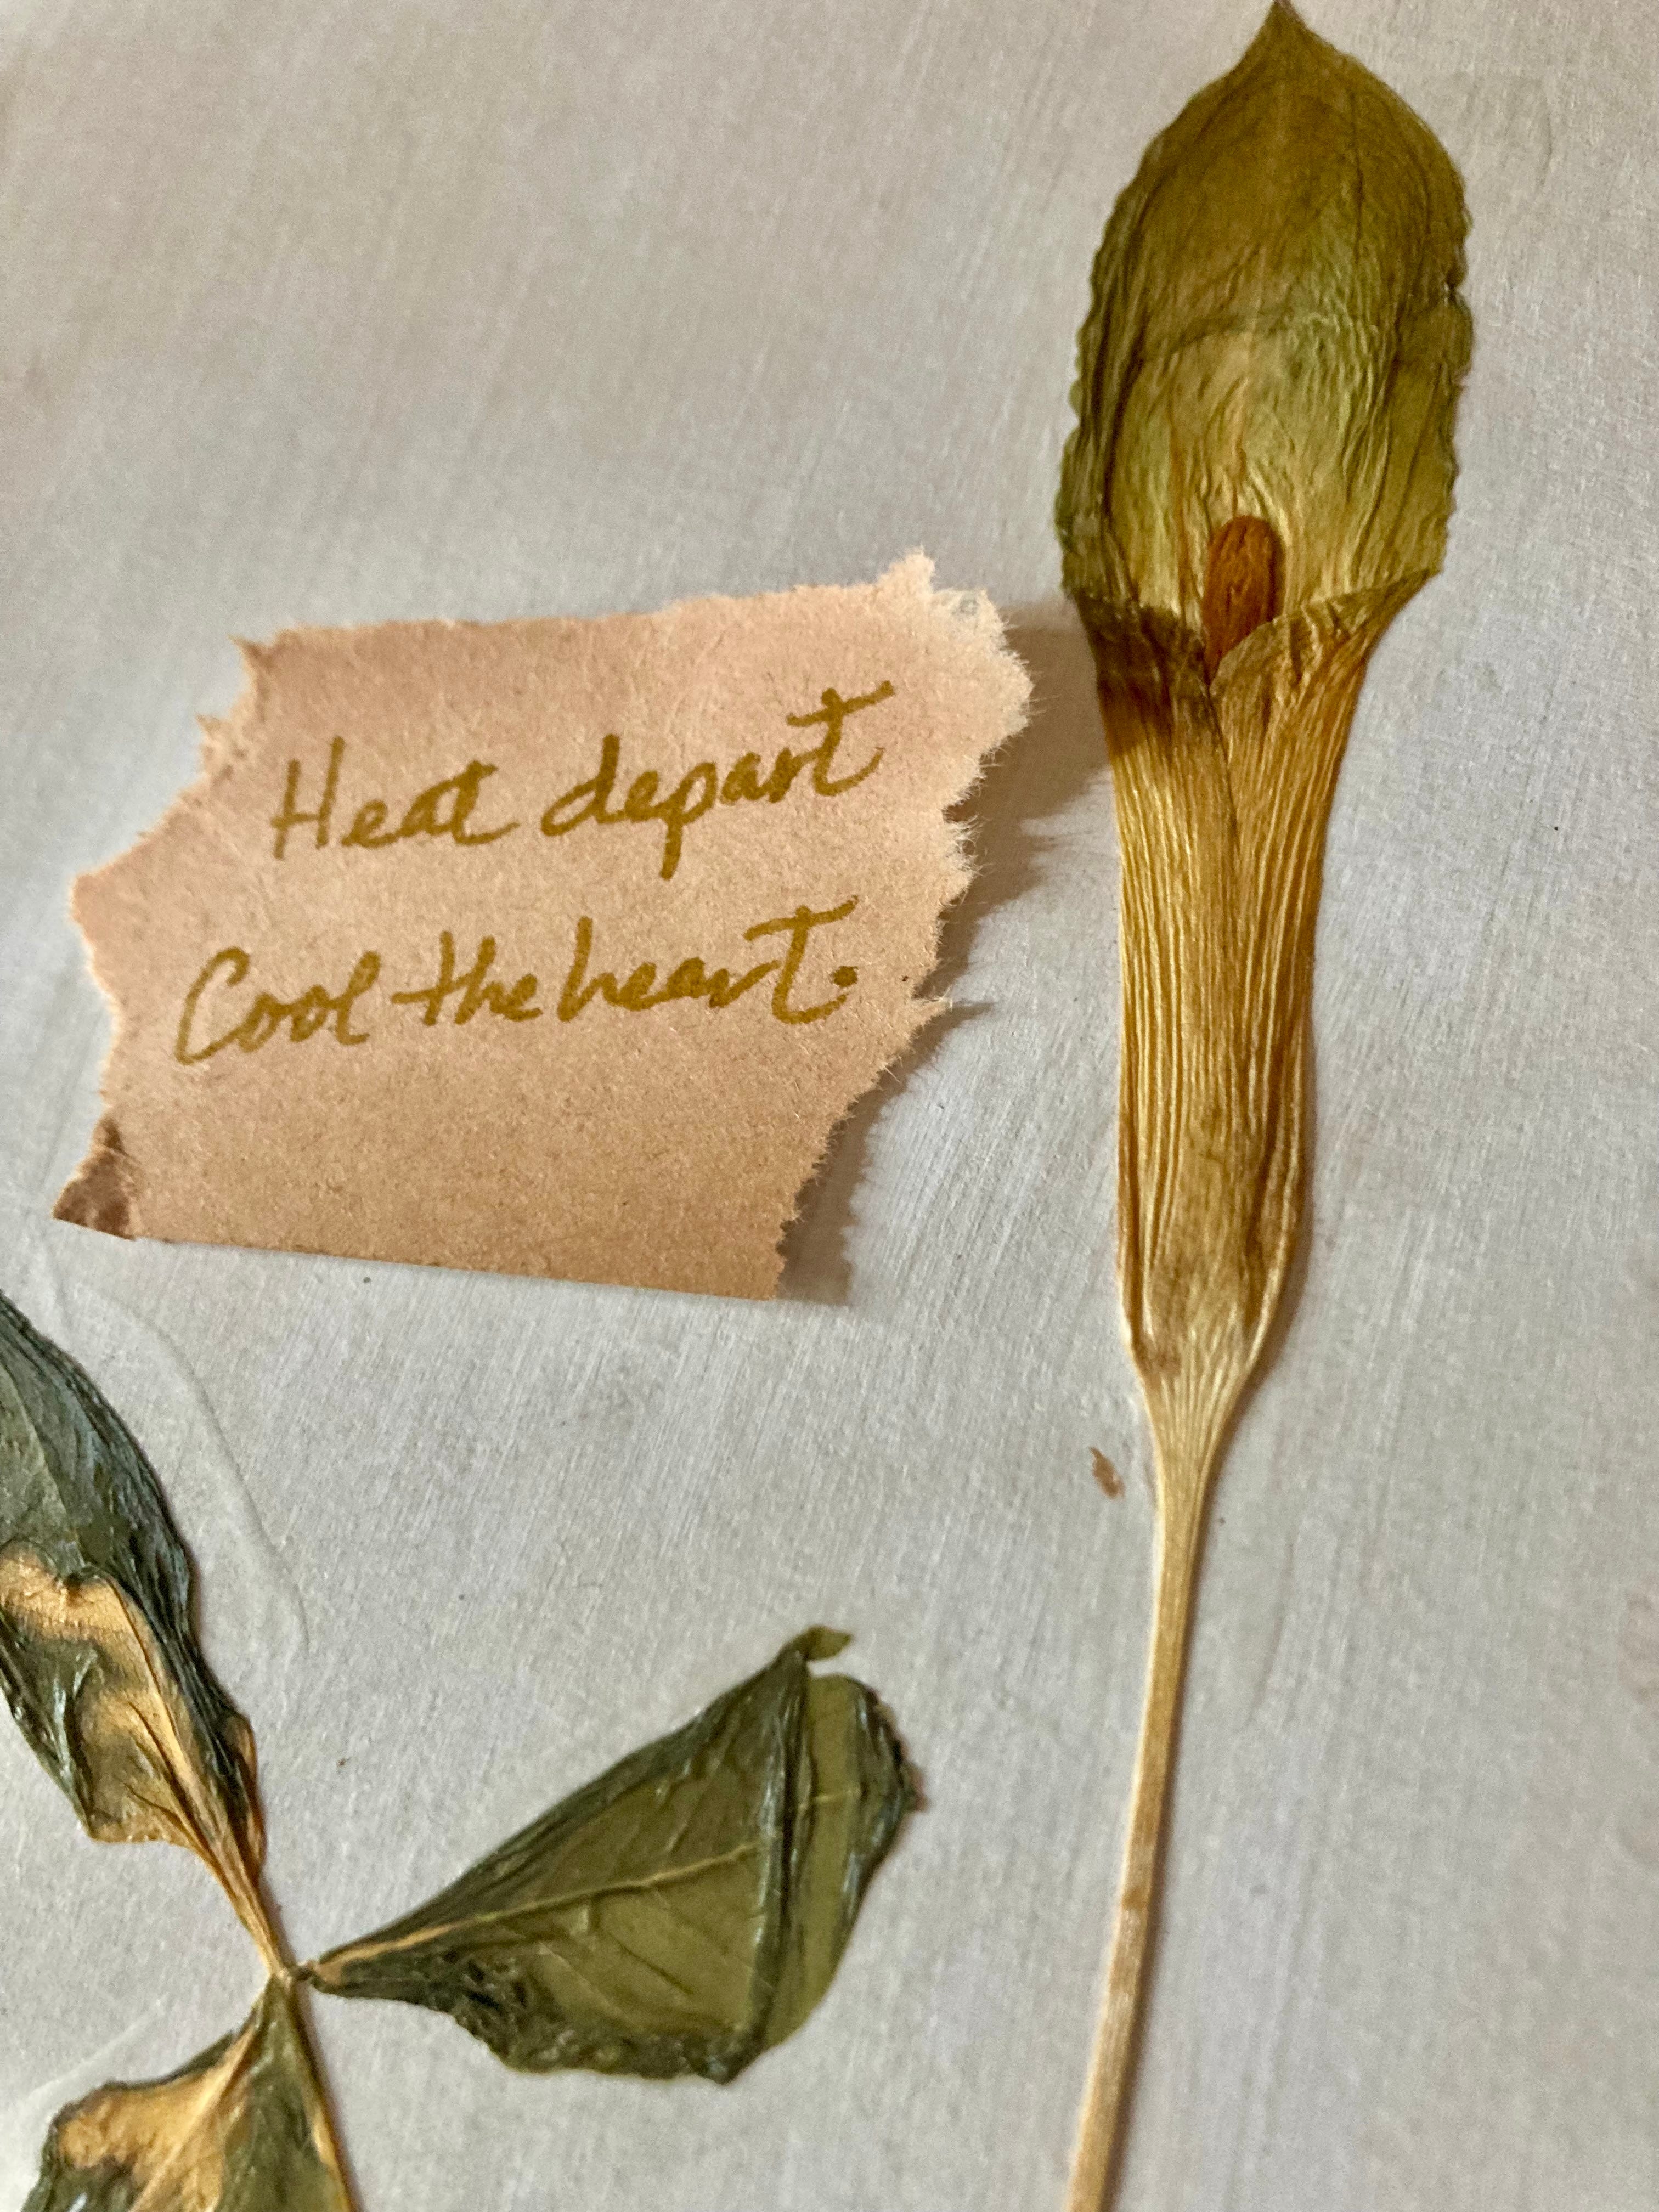 Heat depart
Cool the heart.